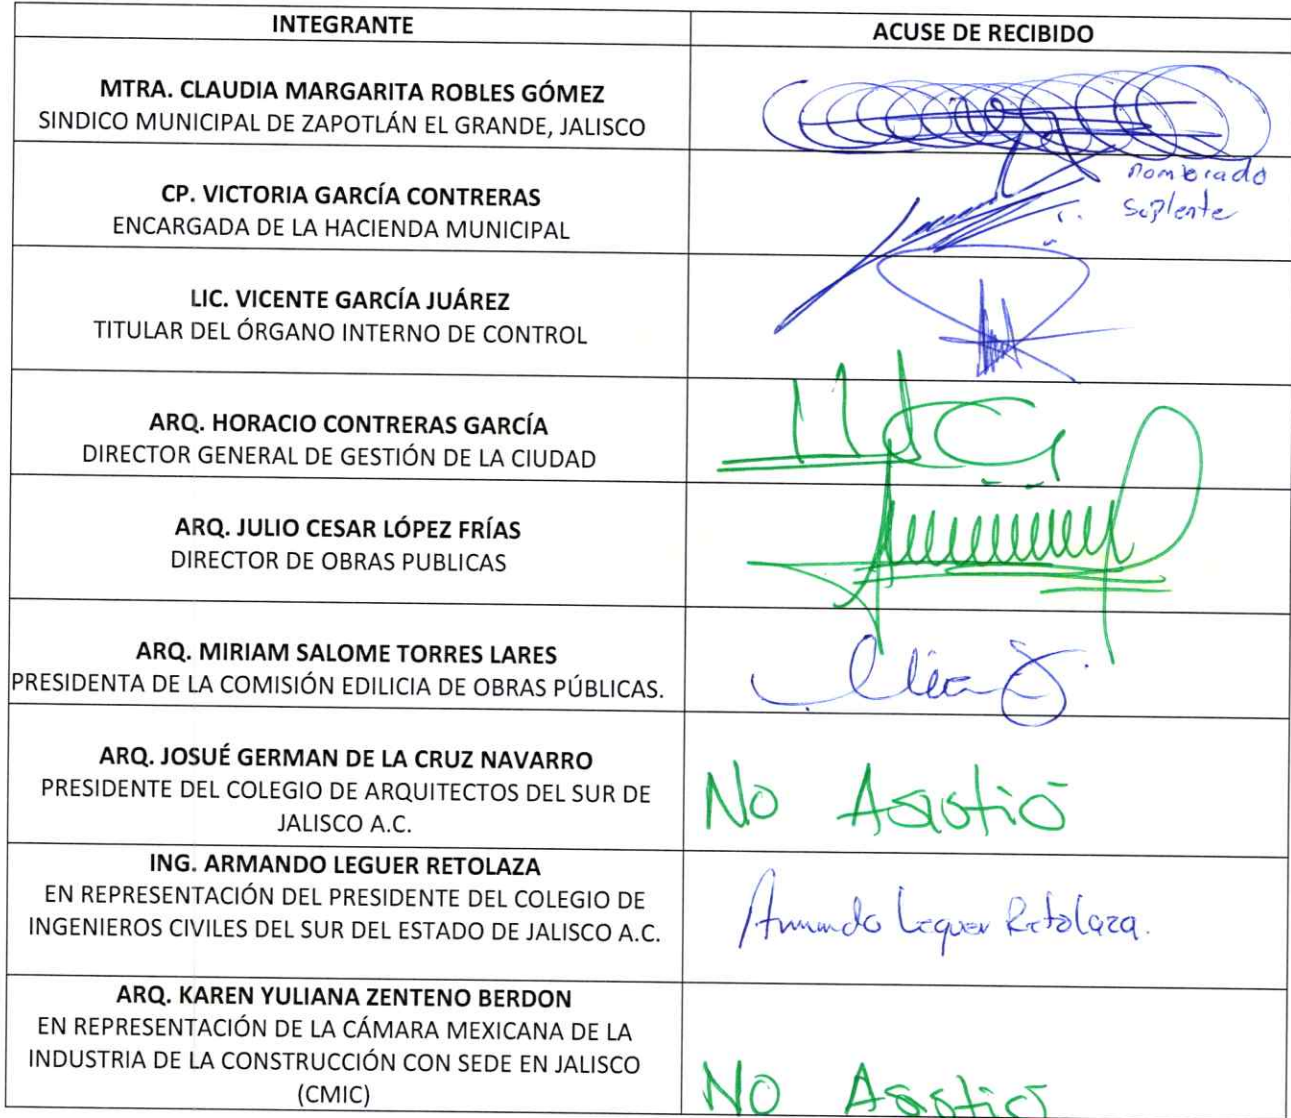 INTEGRANTE
ACUSE DE RECIBIDO
MTRA. CLAUDIA MARGARITA ROBLES GÓMEZ
SINDICO MUNICIPAL DE ZAPOTLÁN EL GRANDE, JALISCO
CP. VICTORIA GARCÍA CONTRERAS
ENCARGADA DE LA HACIENDA MUNICIPAL
nombrado
suplente
LIC. VICENTE GARCÍA JUÁREZ
TITULAR DEL ÓRGANO INTERNO DE CONTROL
ARQ. HORACIO CONTRERAS GARCÍA
DIRECTOR GENERAL DE GESTIÓN DE LA CIUDAD
ARQ. JULIO CESAR LÓPEZ FRÍAS
DIRECTOR DE OBRAS PUBLICAS
ARQ. MIRIAM SALOME TORRES LARES
PRESIDENTA DE LA COMISIÓN EDILICIA DE OBRAS PÚBLICAS.
ARQ. JOSUÉ GERMAN DE LA CRUZ NAVARRO
PRESIDENTE DEL COLEGIO DE ARQUITECTOS DEL SUR DE
JALISCO A.C.
No Asistió
ING. ARMANDO LEGUER RETOLAZA
EN REPRESENTACIÓN DEL PRESIDENTE DEL COLEGIO DE
INGENIEROS CIVILES DEL SUR DEL ESTADO DE JALISCO A.C.
Armando Leguer Retolaza.
ARQ. KAREN YULIANA ZENTENO BERDON
EN REPRESENTACIÓN DE LA CÁMARA MEXICANA DE LA
INDUSTRIA DE LA CONSTRUCCIÓN CON SEDE EN JALISCO
(CMIC)
No Asistió